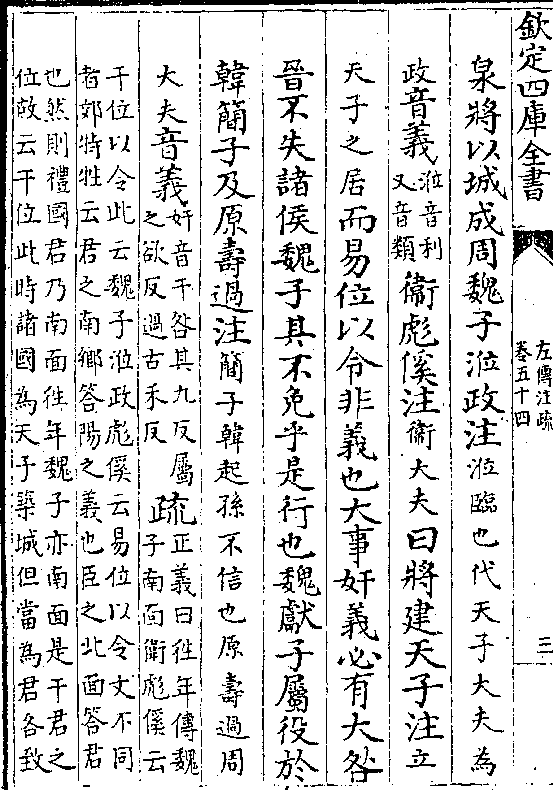 欽定四庫全書
左傳注疏
卷五十四
三
泉將以城成周魏子涖政注涖臨也代天子大夫為
政音義涖音利
又音類
衞彪傒注衞大夫曰將建天子注立
天子之居而易位以令非義也大事奸義必有大咎
晉不失諸侯魏子其不免乎是行也魏獻子屬役於
韓簡子及原壽過注簡子韓起孫不信也原壽過周
大夫音義奸音干咎其九反屬
之欲反過古禾反
疏正義曰往年傳魏
子南面衞彪傒云
干位以令此云魏子涖政彪傒云易位以令文不同
者郊特牲云君之南鄉答陽之義也臣之北面答君
也然則禮國君乃南面往年魏子亦南面是干君之
位故云干位此時諸國為天子築城但當為君各致